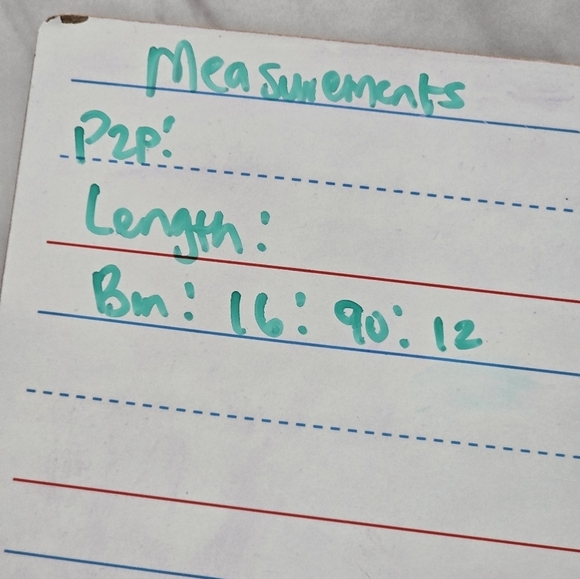 Measurements
P2P:
Length:
Bin: 16: 90: 12